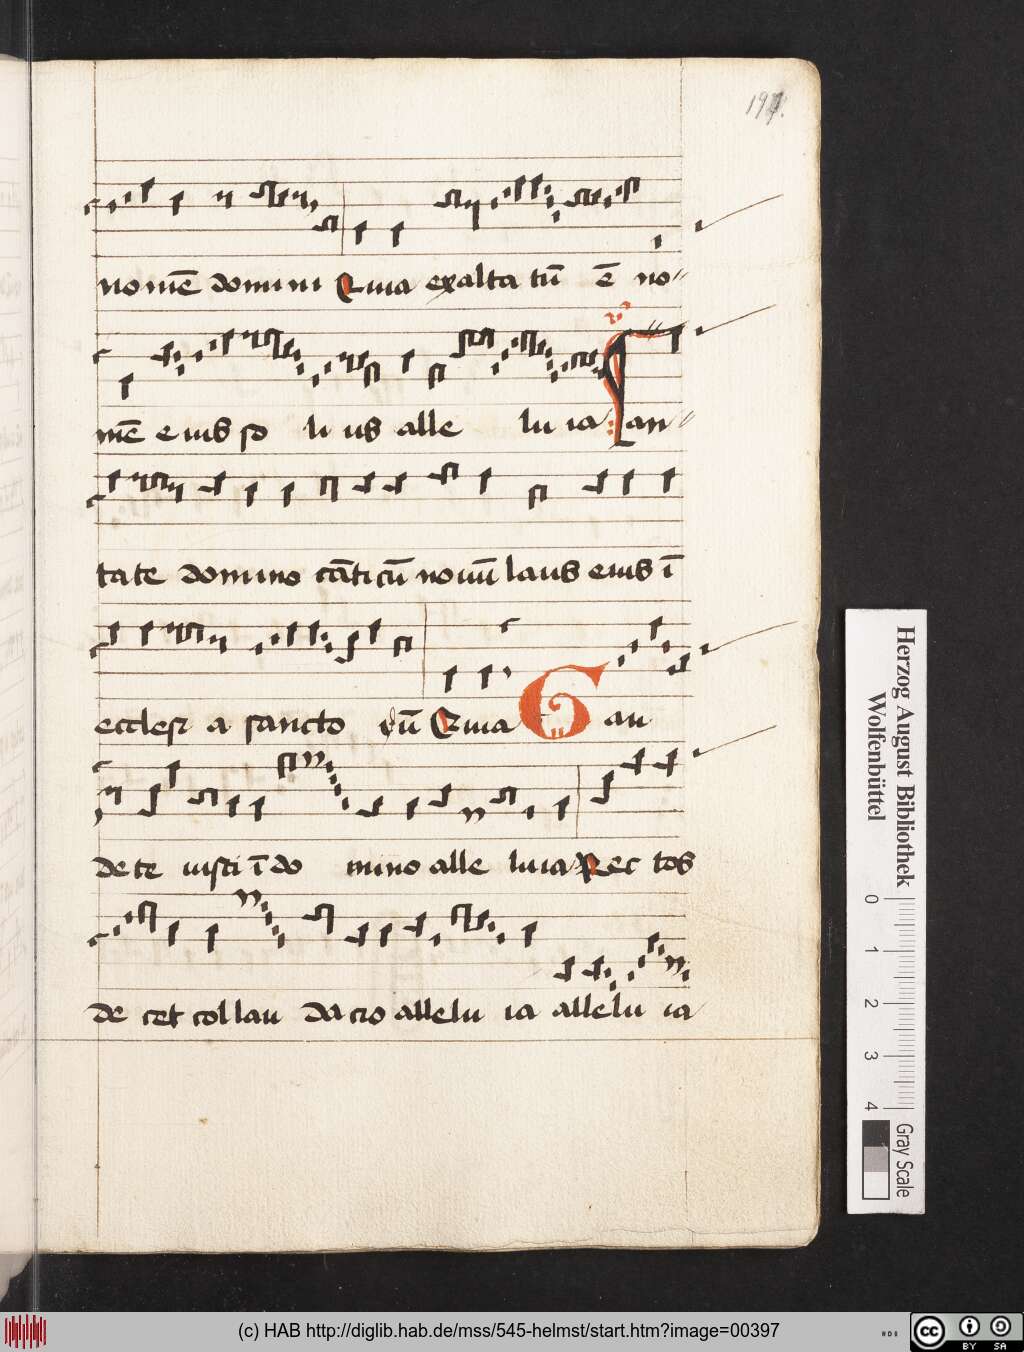 197.
nomē domini Quia exalta tū ē no
mē eius so li us alle lu ia Can
tate domino cāticū nouū laus eius ī
ecclesia sancto rū Quia Gau
dete iusti ī do mino alle luia Rec tos
de cet collau dacio allelu ia allelu ia
Herzog August Bibliothek
Wolfenbüttel
0 1 2 3 4
Gray Scale
(c) HAB http://diglib.hab.de/mss/545-helmst/start.htm?image=00397
cc BY SA